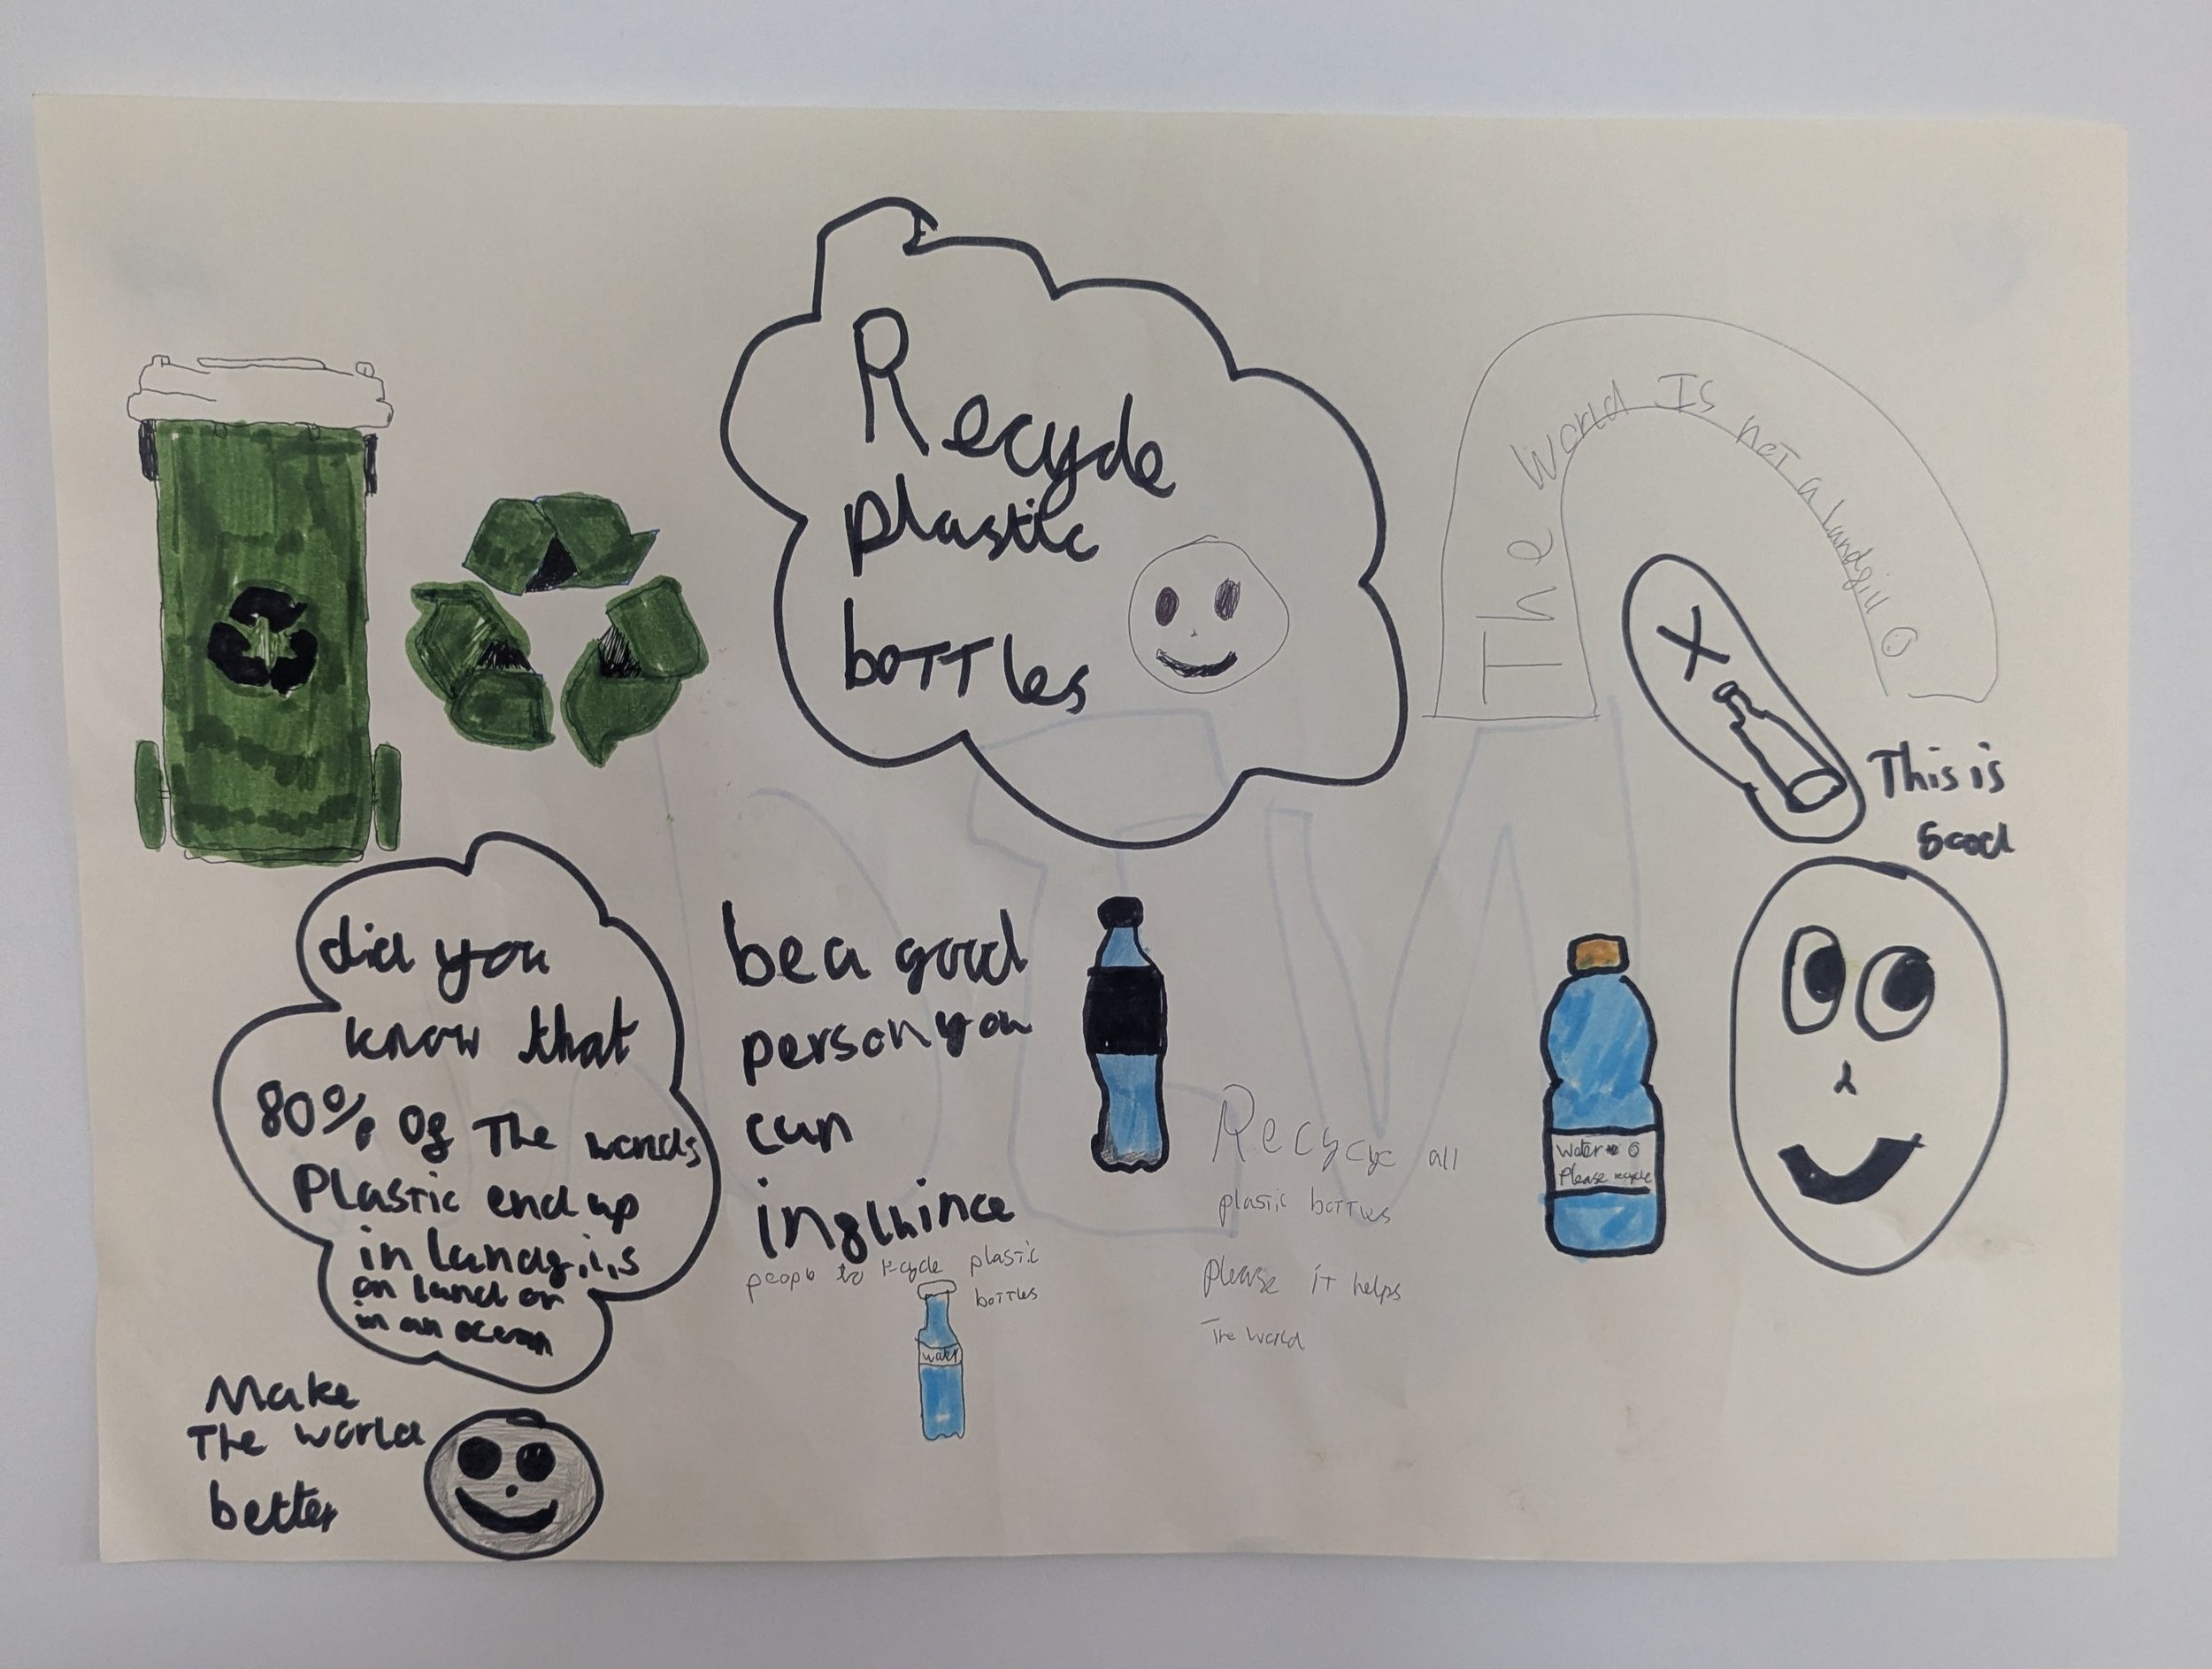 Recycle
plastic
bottles
The world Is not a landfill
X
This is
Good
did you
know that
80% of The worlds
Plastic end up
in landfills
on land or
in an ocean
be a good
person you
can
influince
people to recycle plastic
bottles
water
Recycle all
plastic bottles
please it helps
The world
Water
Please recycle
Make
The world
better